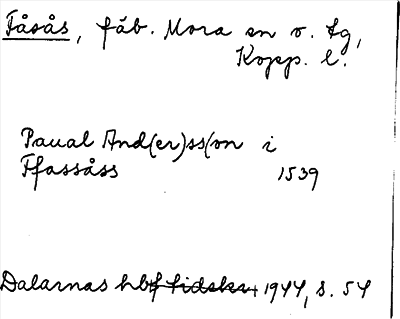 Fåsås, fäb. Mora sn o. tg,
Kopp. l.
Paual And(er)ss(on i
Ffassåss 1539
Dalarnas hbf tidskr 1944, s. 54